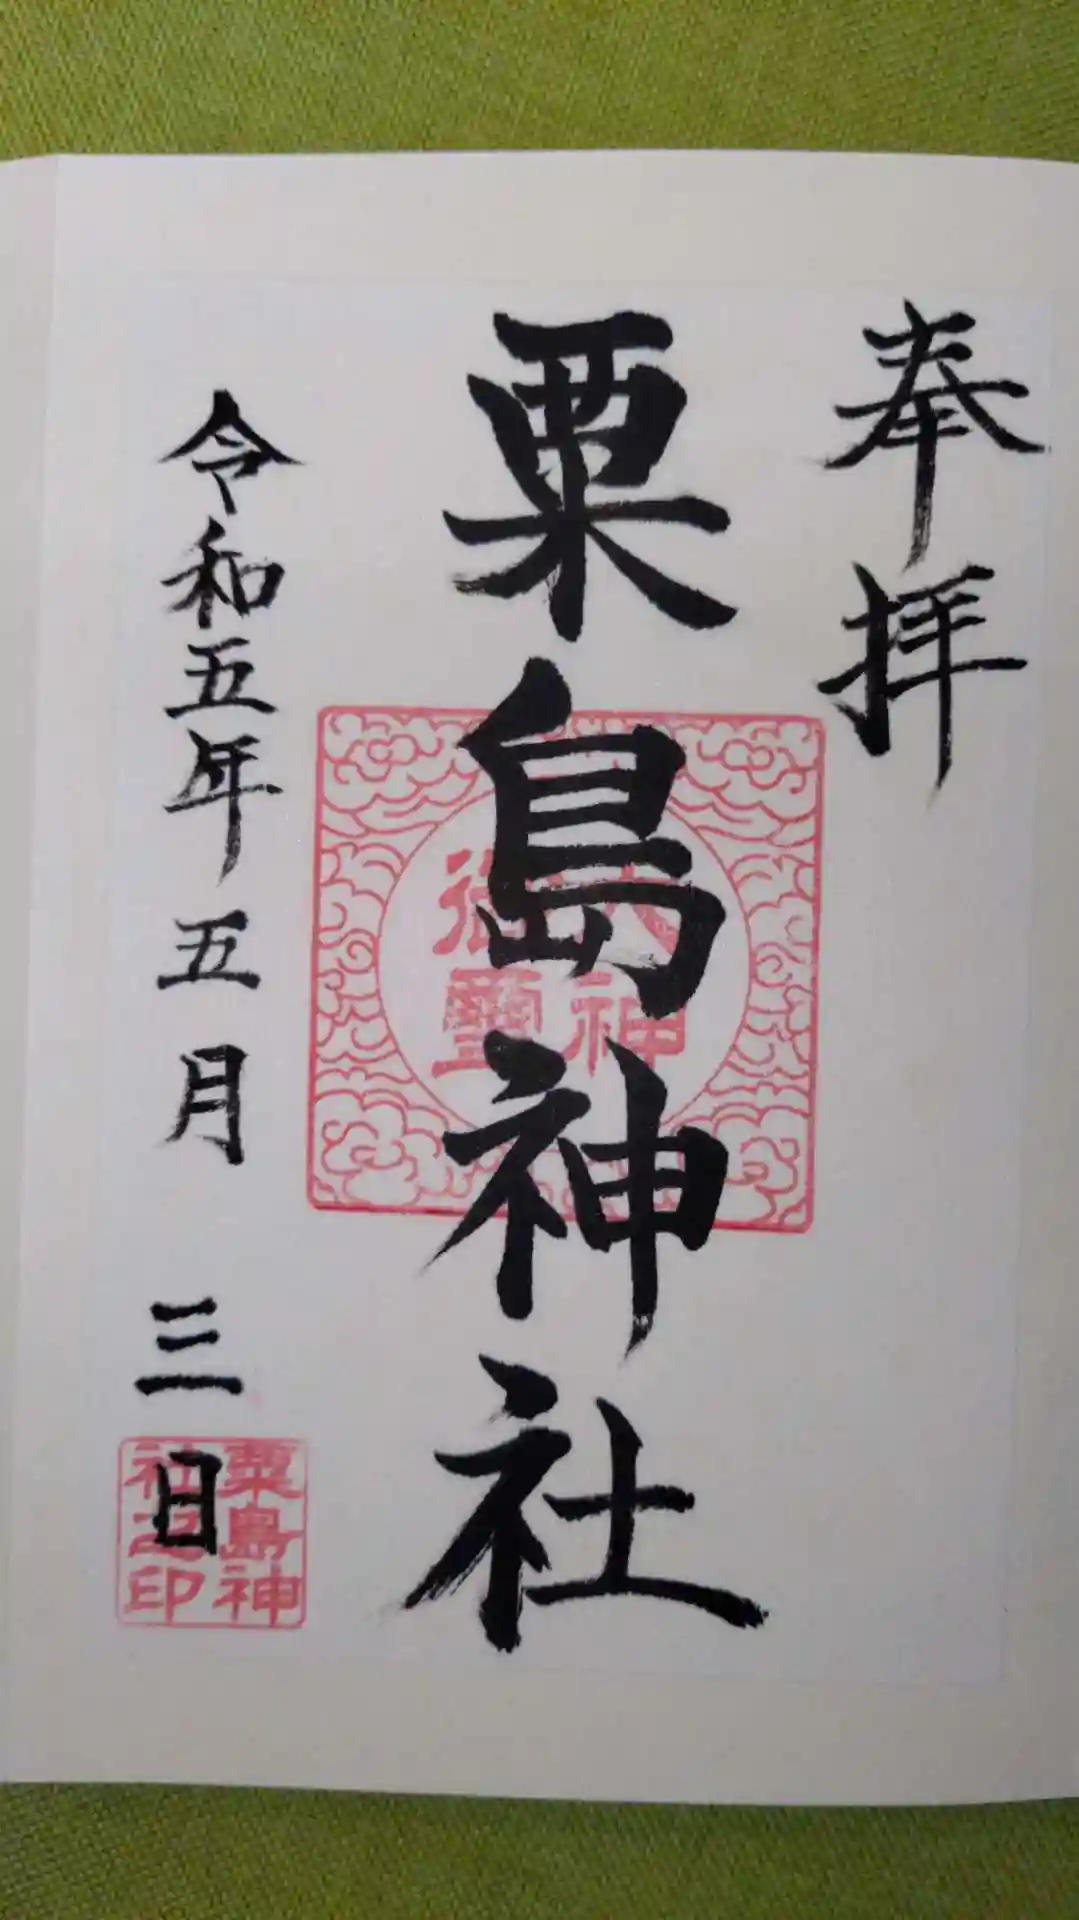 奉拝
粟島神社
大神
御璽
令和五年五月三日
粟島神
社之印